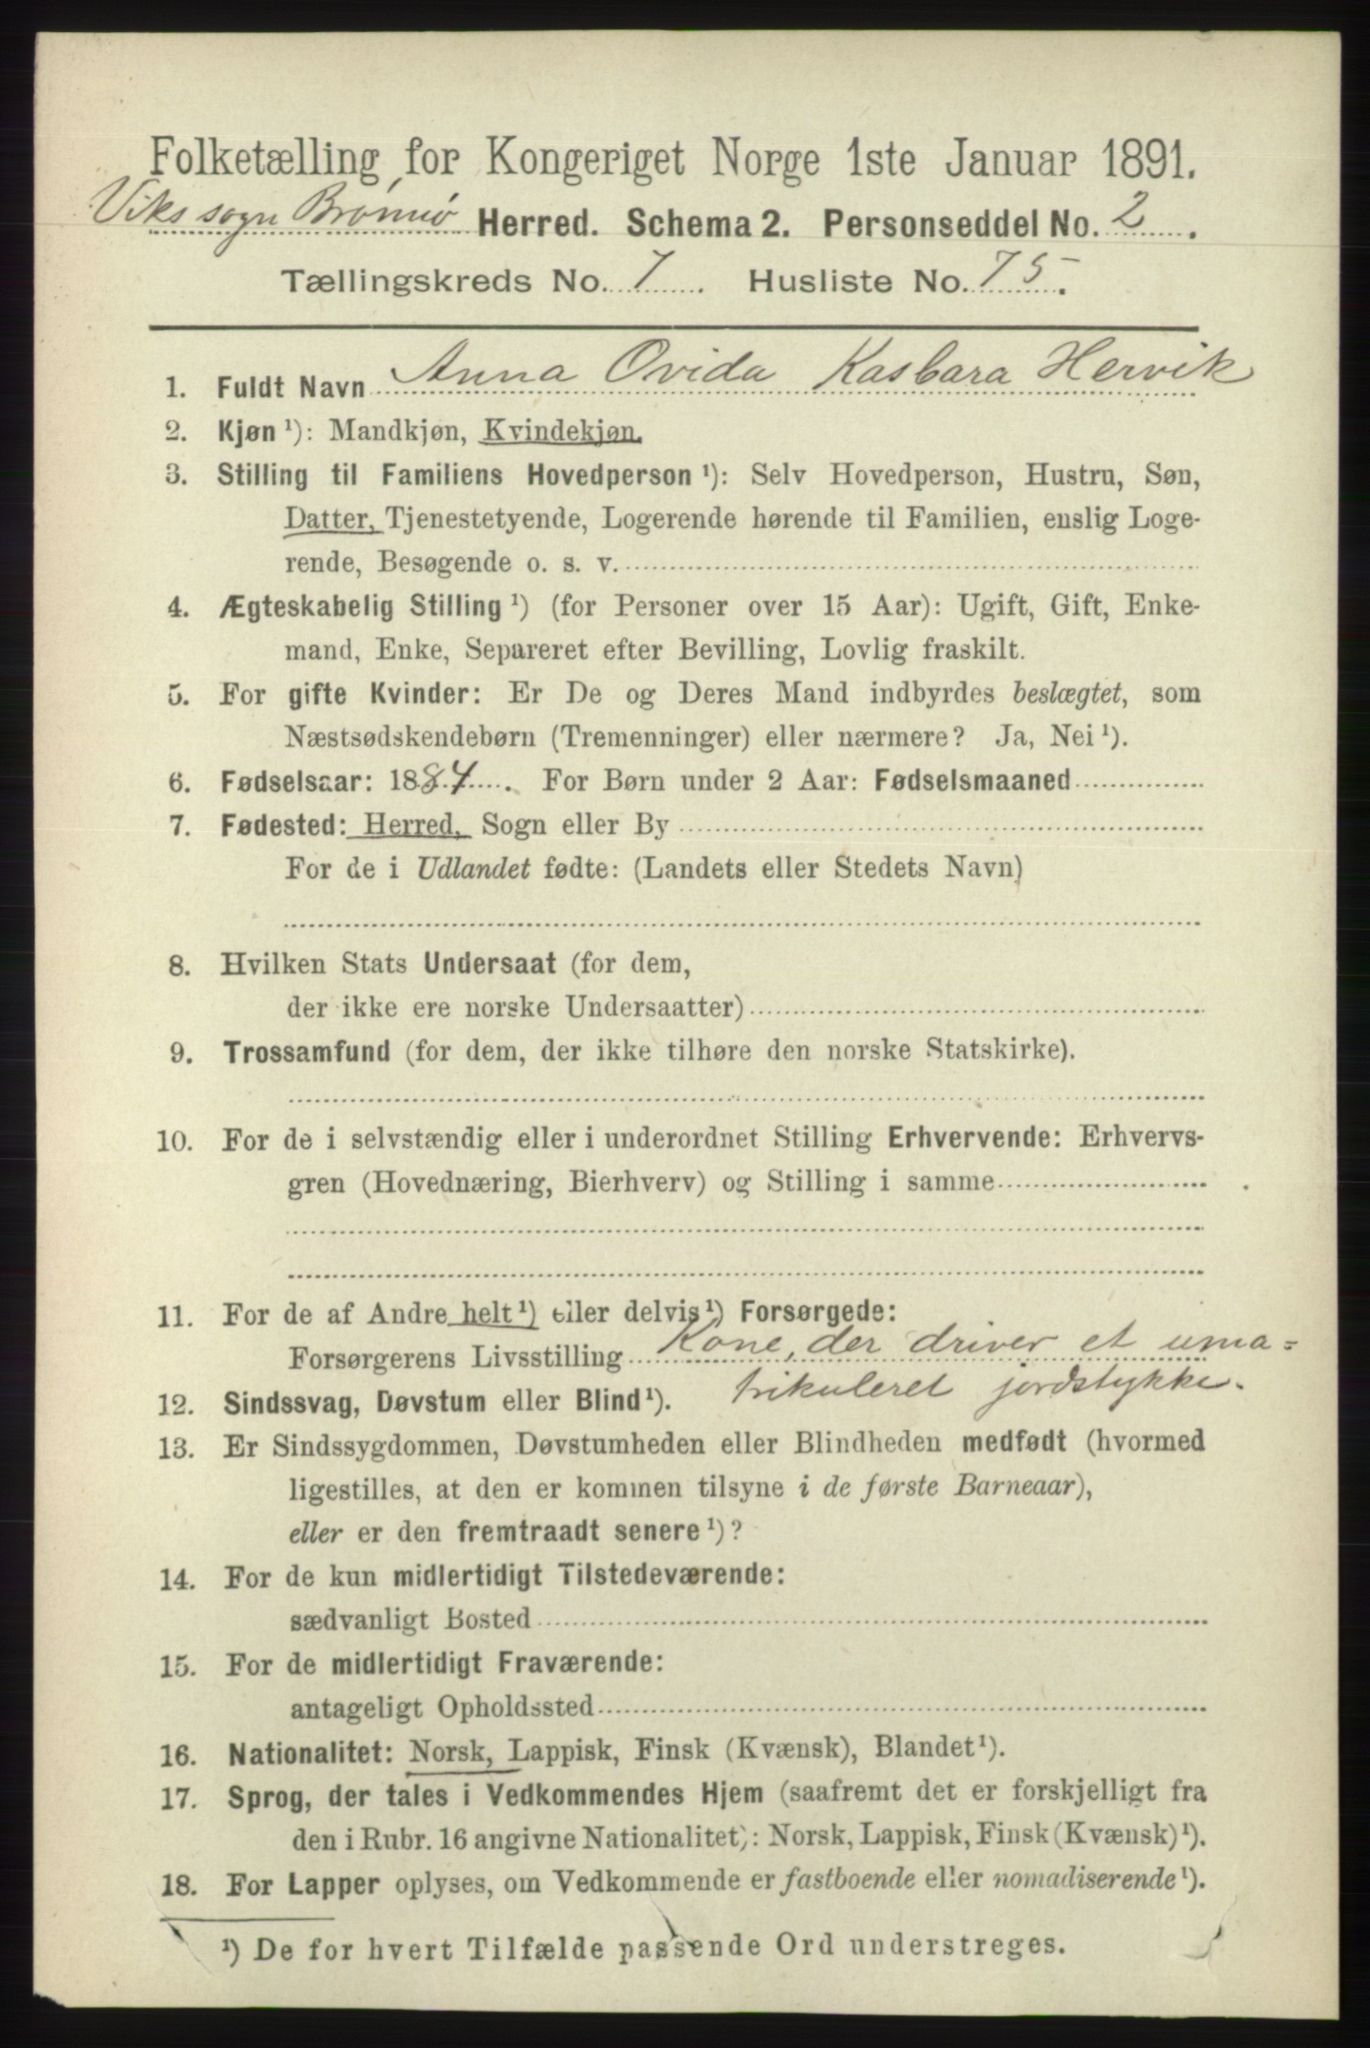 Folketælling for Kongeriget Norge 1ste Januar 1891.
Viks sogn Brønnø Herred. Schema 2. Personseddel No. 2.
Tællingskreds No. 7. Husliste No. 75.
1. Fuldt Navn Anna Ovida Kasbara Hervik
2. Kjøn ¹): Mandkjøn, Kvindekjøn.
3. Stilling til Familiens Hovedperson ¹): Selv Hovedperson, Hustru, Søn,
Datter, Tjenestetyende, Logerende hørende til Familien, enslig Loge-
rende, Besøgende o. s. v.
4. Ægteskabelig Stilling ¹) (for Personer over 15 Aar): Ugift, Gift, Enke-
mand, Enke, Separeret efter Bevilling, Lovlig fraskilt.
5. For gifte Kvinder: Er De og Deres Mand indbyrdes beslægtet, som
Næstsødskendebørn (Tremenninger) eller nærmere? Ja, Nei ¹).
6. Fødselsaar: 1884. For Børn under 2 Aar: Fødselsmaaned
7. Fødested: Herred, Sogn eller By
For de i Udlandet fødte: (Landets eller Stedets Navn)
8. Hvilken Stats Undersaat (for dem,
der ikke ere norske Undersaatter)
9. Trossamfund (for dem, der ikke tilhøre den norske Statskirke).
10. For de i selvstændig eller i underordnet Stilling Erhvervende: Erhvervs-
gren (Hovednæring, Bierhverv) og Stilling i samme
11. For de af Andre helt ¹) eller delvis ¹) Forsørgede:
Forsørgerens Livsstilling Kone, der driver et uma-
trikuleret jordstykke.
12. Sindssvag, Døvstum eller Blind ¹).
13. Er Sindssygdommen, Døvstumheden eller Blindheden medfødt (hvormed
ligestilles, at den er kommen tilsyne i de første Barneaar),
eller er den fremtraadt senere ¹)?
14. For de kun midlertidigt Tilstedeværende:
sædvanligt Bosted
15. For de midlertidigt Fraværende:
antageligt Opholdssted
16. Nationalitet: Norsk, Lappisk, Finsk (Kvænsk), Blandet ¹).
17. Sprog, der tales i Vedkommendes Hjem (saafremt det er forskjelligt fra
den i Rubr. 16 angivne Nationalitet): Norsk, Lappisk, Finsk (Kvænsk) ¹).
18. For Lapper oplyses, om Vedkommende er fastboende eller nomadiserende ¹).
¹) De for hvert Tilfælde passende Ord understreges.